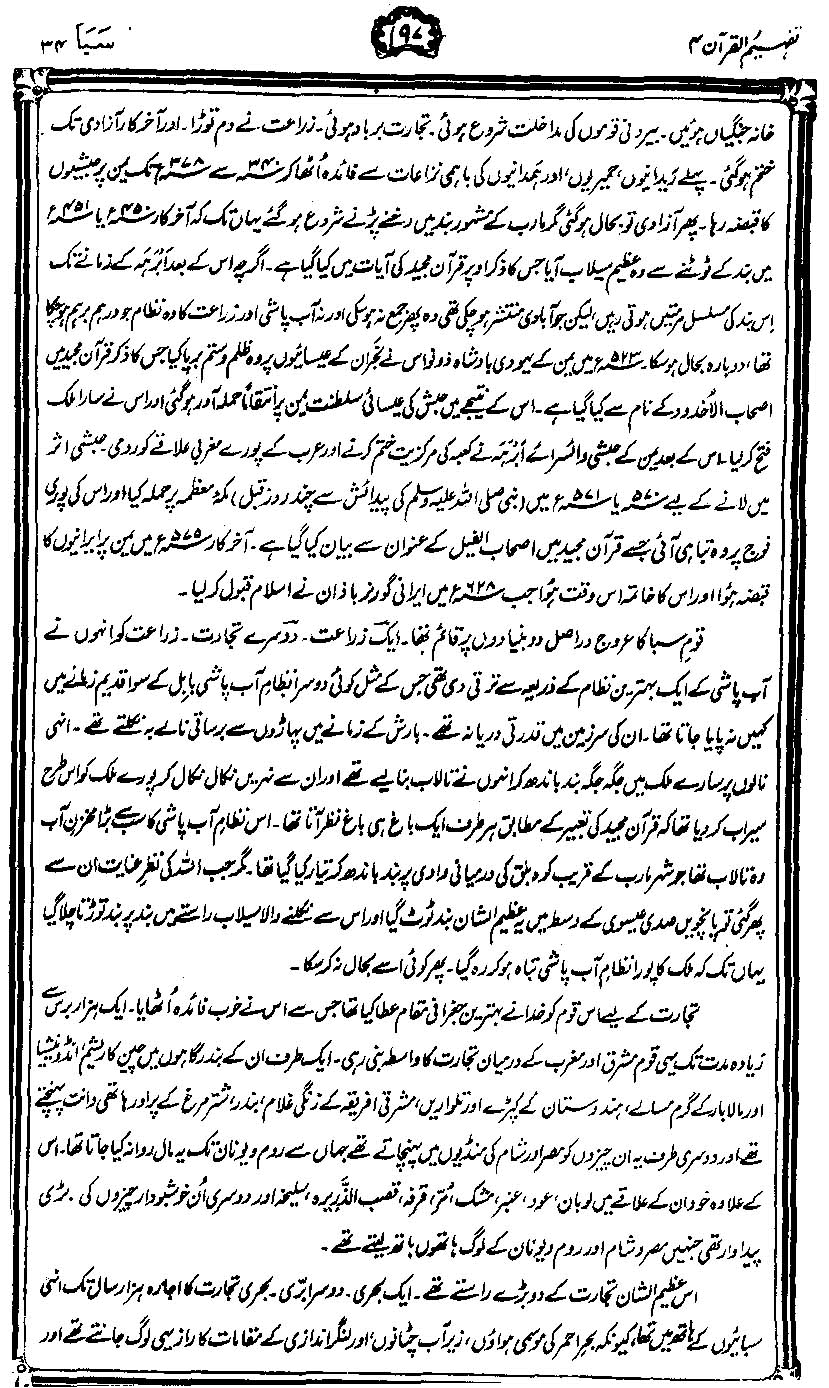 تفہیم القرآن ۴
۱۹۷
سَبَا ۳۴
خانہ جنگیاں ہوئیں۔ بیرونی قوموں کی مداخلت شروع ہوئی۔ تجارت برباد ہوئی۔ زراعت نے دم توڑا۔ اور آخر کار آزادی تک
ختم ہو گئی۔ پہلے ریدانیوں، حمیریوں، اور ہمدانیوں کی باہمی نزاعات سے فائدہ اُٹھا کر ۳۴۰ء سے ۳۷۸ء تک یمن پر حبشیوں
کا قبضہ رہا۔ پھر آزادی تو بحال ہو گئی مگر مارب کے مشہور بند میں رخنے پڑنے شروع ہو گئے یہاں تک کہ آخر کار ۴۵۰ء یا ۴۵۱ء
میں بند کے ٹوٹنے سے وہ عظیم سیلاب آیا جس کا ذکر اوپر قرآن مجید کی آیات میں کیا گیا ہے۔ اگرچہ اس کے بعد اَبْرَہہ کے زمانے تک
اِس بند کی مسلسل مرمتیں ہوتی رہیں، لیکن جو آبادی منتشر ہو چکی تھی وہ پھر جمع نہ ہو سکی اور نہ آب پاشی اور زراعت کا وہ نظام جو درہم برہم ہو چکا
تھا، دوبارہ بحال ہو سکا۔ ۵۲۳ء میں یمن کے یہودی بادشاہ ذونواس نے نَجْران کے عیسائیوں پر وہ ظلم و ستم برپا کیا جس کا ذکر قرآن مجید میں
اصحاب الاُخدود کے نام سے کیا گیا ہے۔ اس کے نتیجے میں حبش کی عیسائی سلطنت یمن پر انتقاماً حملہ آور ہو گئی اور اس نے سارا ملک
فتح کر لیا۔ اس کے بعد یمن کے حبشی وائسرائے اَبْرَہہ نے کعبہ کی مرکزیت ختم کرنے اور عرب کے پورے مغربی علاقے کو رومی۔ حبشی اثر
میں لانے کے لیے ۵۷۰ء یا ۵۷۱ء میں (نبی صلی اللہ علیہ وسلم کی پیدائش سے چند روز قبل) مکۂ معظمہ پر حملہ کیا اور اس کی پوری
فوج پر وہ تباہی آئی جسے قرآن مجید میں اصحاب الفیل کے عنوان سے بیان کیا گیا ہے۔ آخر کار ۵۷۵ء میں یمن پر ایرانیوں کا
قبضہ ہُوا اور اس کا خاتمہ اس وقت ہُوا جب ۶۲۸ء میں ایرانی گورنر باذان نے اسلام قبول کر لیا۔
قوم سبا کا عروج دراصل دو بنیادوں پر قائم تھا۔ ایک زراعت۔ دوسرے تجارت۔ زراعت کو انہوں نے
آب پاشی کے ایک بہترین نظام کے ذریعہ سے ترقی دی تھی جس کے مثل کوئی دوسرا نظامِ آب پاشی بابل کے سوا قدیم زمانے میں
کہیں نہ پایا جاتا تھا۔ ان کی سرزمین میں قدرتی دریا نہ تھے۔ بارش کے زمانے میں پہاڑوں سے برساتی نالے بہ نکلتے تھے۔ انہی
نالوں پر سارے ملک میں جگہ جگہ بند باندھ کر انہوں نے تالاب بنا لیے تھے اور ان سے نہریں نکال نکال کر پورے ملک کو اس طرح
سیراب کر دیا تھا کہ قرآن مجید کی تعبیر کے مطابق ہر طرف ایک باغ ہی باغ نظر آتا تھا۔ اس نظامِ آب پاشی کا سب سے بڑا مخزنِ آب
وہ تالاب تھا جو شہر مارب کے قریب کوہ بلق کی درمیانی وادی پر بند باندھ کر تیار کیا گیا تھا۔ مگر جب اللہ کی نظرِ عنایت ان سے
پھر گئی تو پانچویں صدی عیسوی کے وسط میں یہ عظیم الشان بند ٹوٹ گیا اور اس سے نکلنے والا سیلاب راستے میں بند پر بند توڑتا چلا گیا
یہاں تک کہ ملک کا پورا نظامِ آب پاشی تباہ ہو کر رہ گیا۔ پھر کوئی اسے بحال نہ کر سکا۔
تجارت کے لیے اس قوم کو خدا نے بہترین جغرافی مقام عطا کیا تھا جس سے اس نے خوب فائدہ اُٹھایا۔ ایک ہزار برس سے
زیادہ مدت تک یہی قوم مشرق اور مغرب کے درمیان تجارت کا واسطہ بنی رہی۔ ایک طرف ان کے بندرگاہوں میں چین کا ریشم، انڈونیشیا
اور مالابار کے گرم مسالے، ہندوستان کے کپڑے اور تلواریں، مشرقی افریقہ کے زنگی غلام، بندر، شتر مرغ کے پر اور ہاتھی دانت پہنچتے
تھے اور دوسری طرف یہ ان چیزوں کو مصر اور شام کی منڈیوں میں پہنچاتے تھے جہاں سے روم و یونان تک یہ مال روانہ کیا جاتا تھا۔ اس
کے علاوہ خود ان کے علاقے میں لوبان، عود، عنبر، مشک، مُر، قرفہ، قصب الذَّریرہ، سلیخہ اور دوسری اُن خوشبو دار چیزوں کی بڑی
پیداوار تھی جنہیں مصر و شام اور روم و یونان کے لوگ ہاتھوں ہاتھ لیتے تھے۔
اس عظیم الشان تجارت کے دو بڑے راستے تھے۔ ایک بحری۔ دوسرا برّی۔ بحری تجارت کا اجارہ ہزار سال تک انہی
سبائیوں کے ہاتھ میں تھا، کیونکہ بحرِ احمر کی موسمی ہواؤں، زیرِ آب چٹانوں، اور لنگر اندازی کے مقامات کا راز یہی لوگ جانتے تھے اور